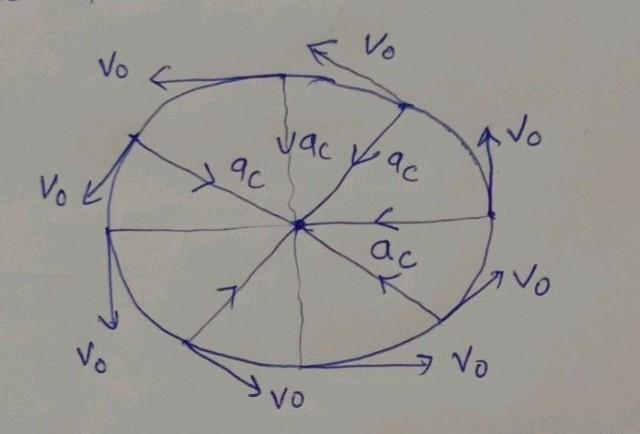 v₀
v₀
v₀
a_c
a_c
a_c
v₀
a_c
v₀
v₀
v₀
v₀